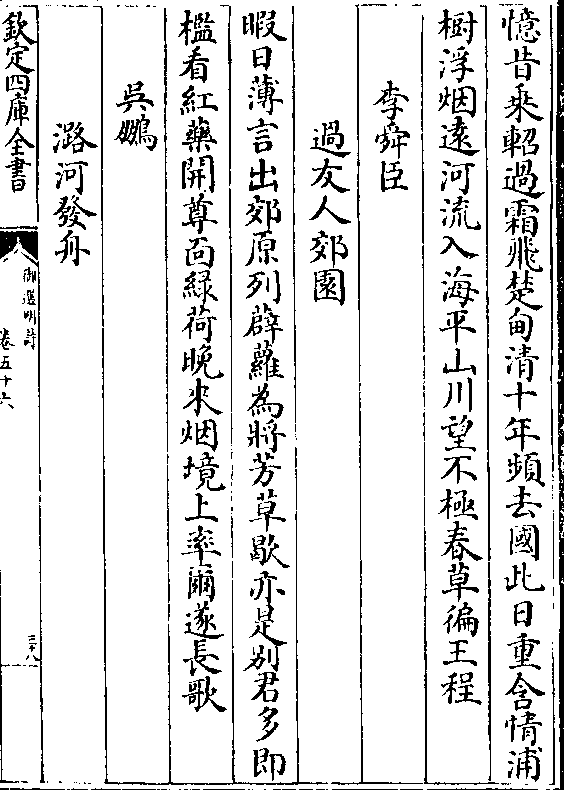 憶昔乗軺過霜飛楚甸清十年頻去國此日重含情浦
樹浮烟逺河流入海平山川望不極春草徧王程
李舜臣
過友人郊園
暇日薄言出郊原列薜蘿為將芳草歇亦是别君多即
檻看紅藥開尊面緑荷晚来烟境上率爾遂長歌
吳鵬
潞河發舟
欽定四庫全書
御選明詩
卷五十六
三十八